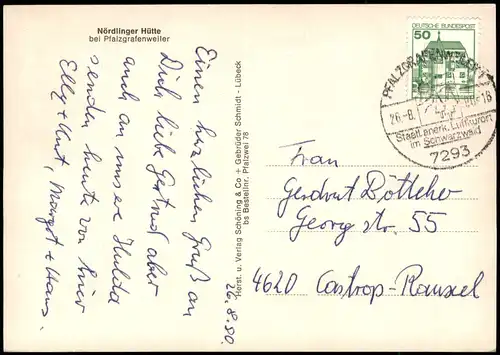 Nördlinger Hütte
bei Pfalzgrafenweiler
Einen herzlichen Gruß an
Dich liebe Gertrud aber
auch an unsere Hulda
senden heute von hier
Elly + Kurt, Margot + Hans.
26.8.80.
Herst. u. Verlag Schöning & Co + Gebrüder Schmidt - Lübeck
bs Bestellnr. Pfalzwei 78
50
DEUTSCHE BUNDESPOST
PFALZGRAFENWEILER 1
26.-8.
-16
Staatl. anerk. Luftkurort
im Schwarzwald
7293
Frau
Gerdrut Böttcher
Georg str. 55
4620 Castrop-Rauxel